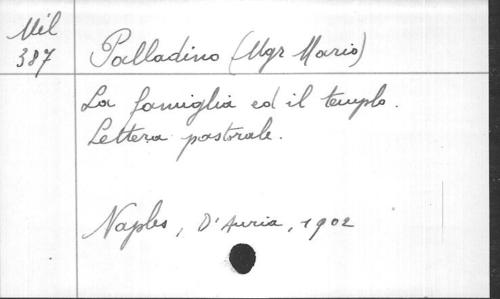 Mil
387
Palladino (Mgr Mario)
La famiglia ed il templo.
Lettera pastorale.
Naples, D'Auria, 1902